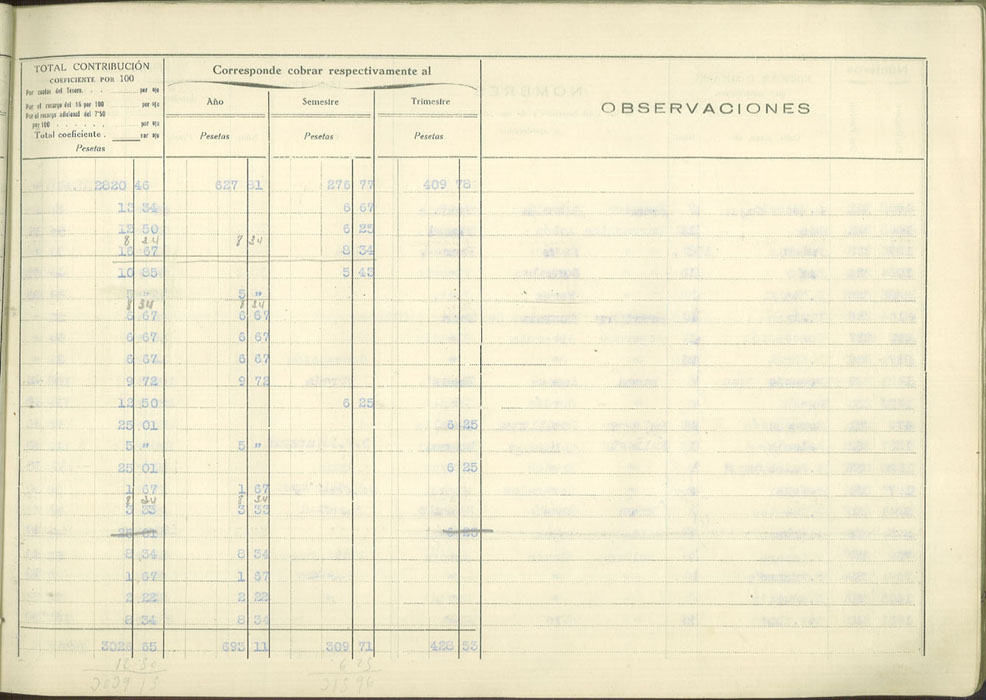 TOTAL CONTRIBUCIÓN
COEFICIENTE POR 100
Por cuotas del Tesoro. . . per o/o
Por el recargo del 16 por 100 per o/o
Por el recargo adicional del 7'50
por 100 . . . . . . per o/o
Total coeficiente . per o/o
Pesetas
Corresponde cobrar respectivamente al
Año Semestre Trimestre
Pesetas Pesetas Pesetas
OBSERVACIONES
2820 46 627 81 276 77 409 78
13 34 6 67
12 50 6 25
8 34 8 34
16 67 8 34
10 85 5 43
5 " 5 "
8 34 8 34
6 67 6 67
6 67 6 67
6 67 6 67
9 72 9 72
12 50 6 25
25 01 6 25
5 " 5 "
25 01 6 25
1 67 1 67
8 34 8 34
3 33 3 33
25 01 6 25
8 34 8 34
1 67 1 67
2 22 2 22
8 34 8 34
3026 65 693 11 309 71 428 53
12 50 6 25
3039 15 315 96